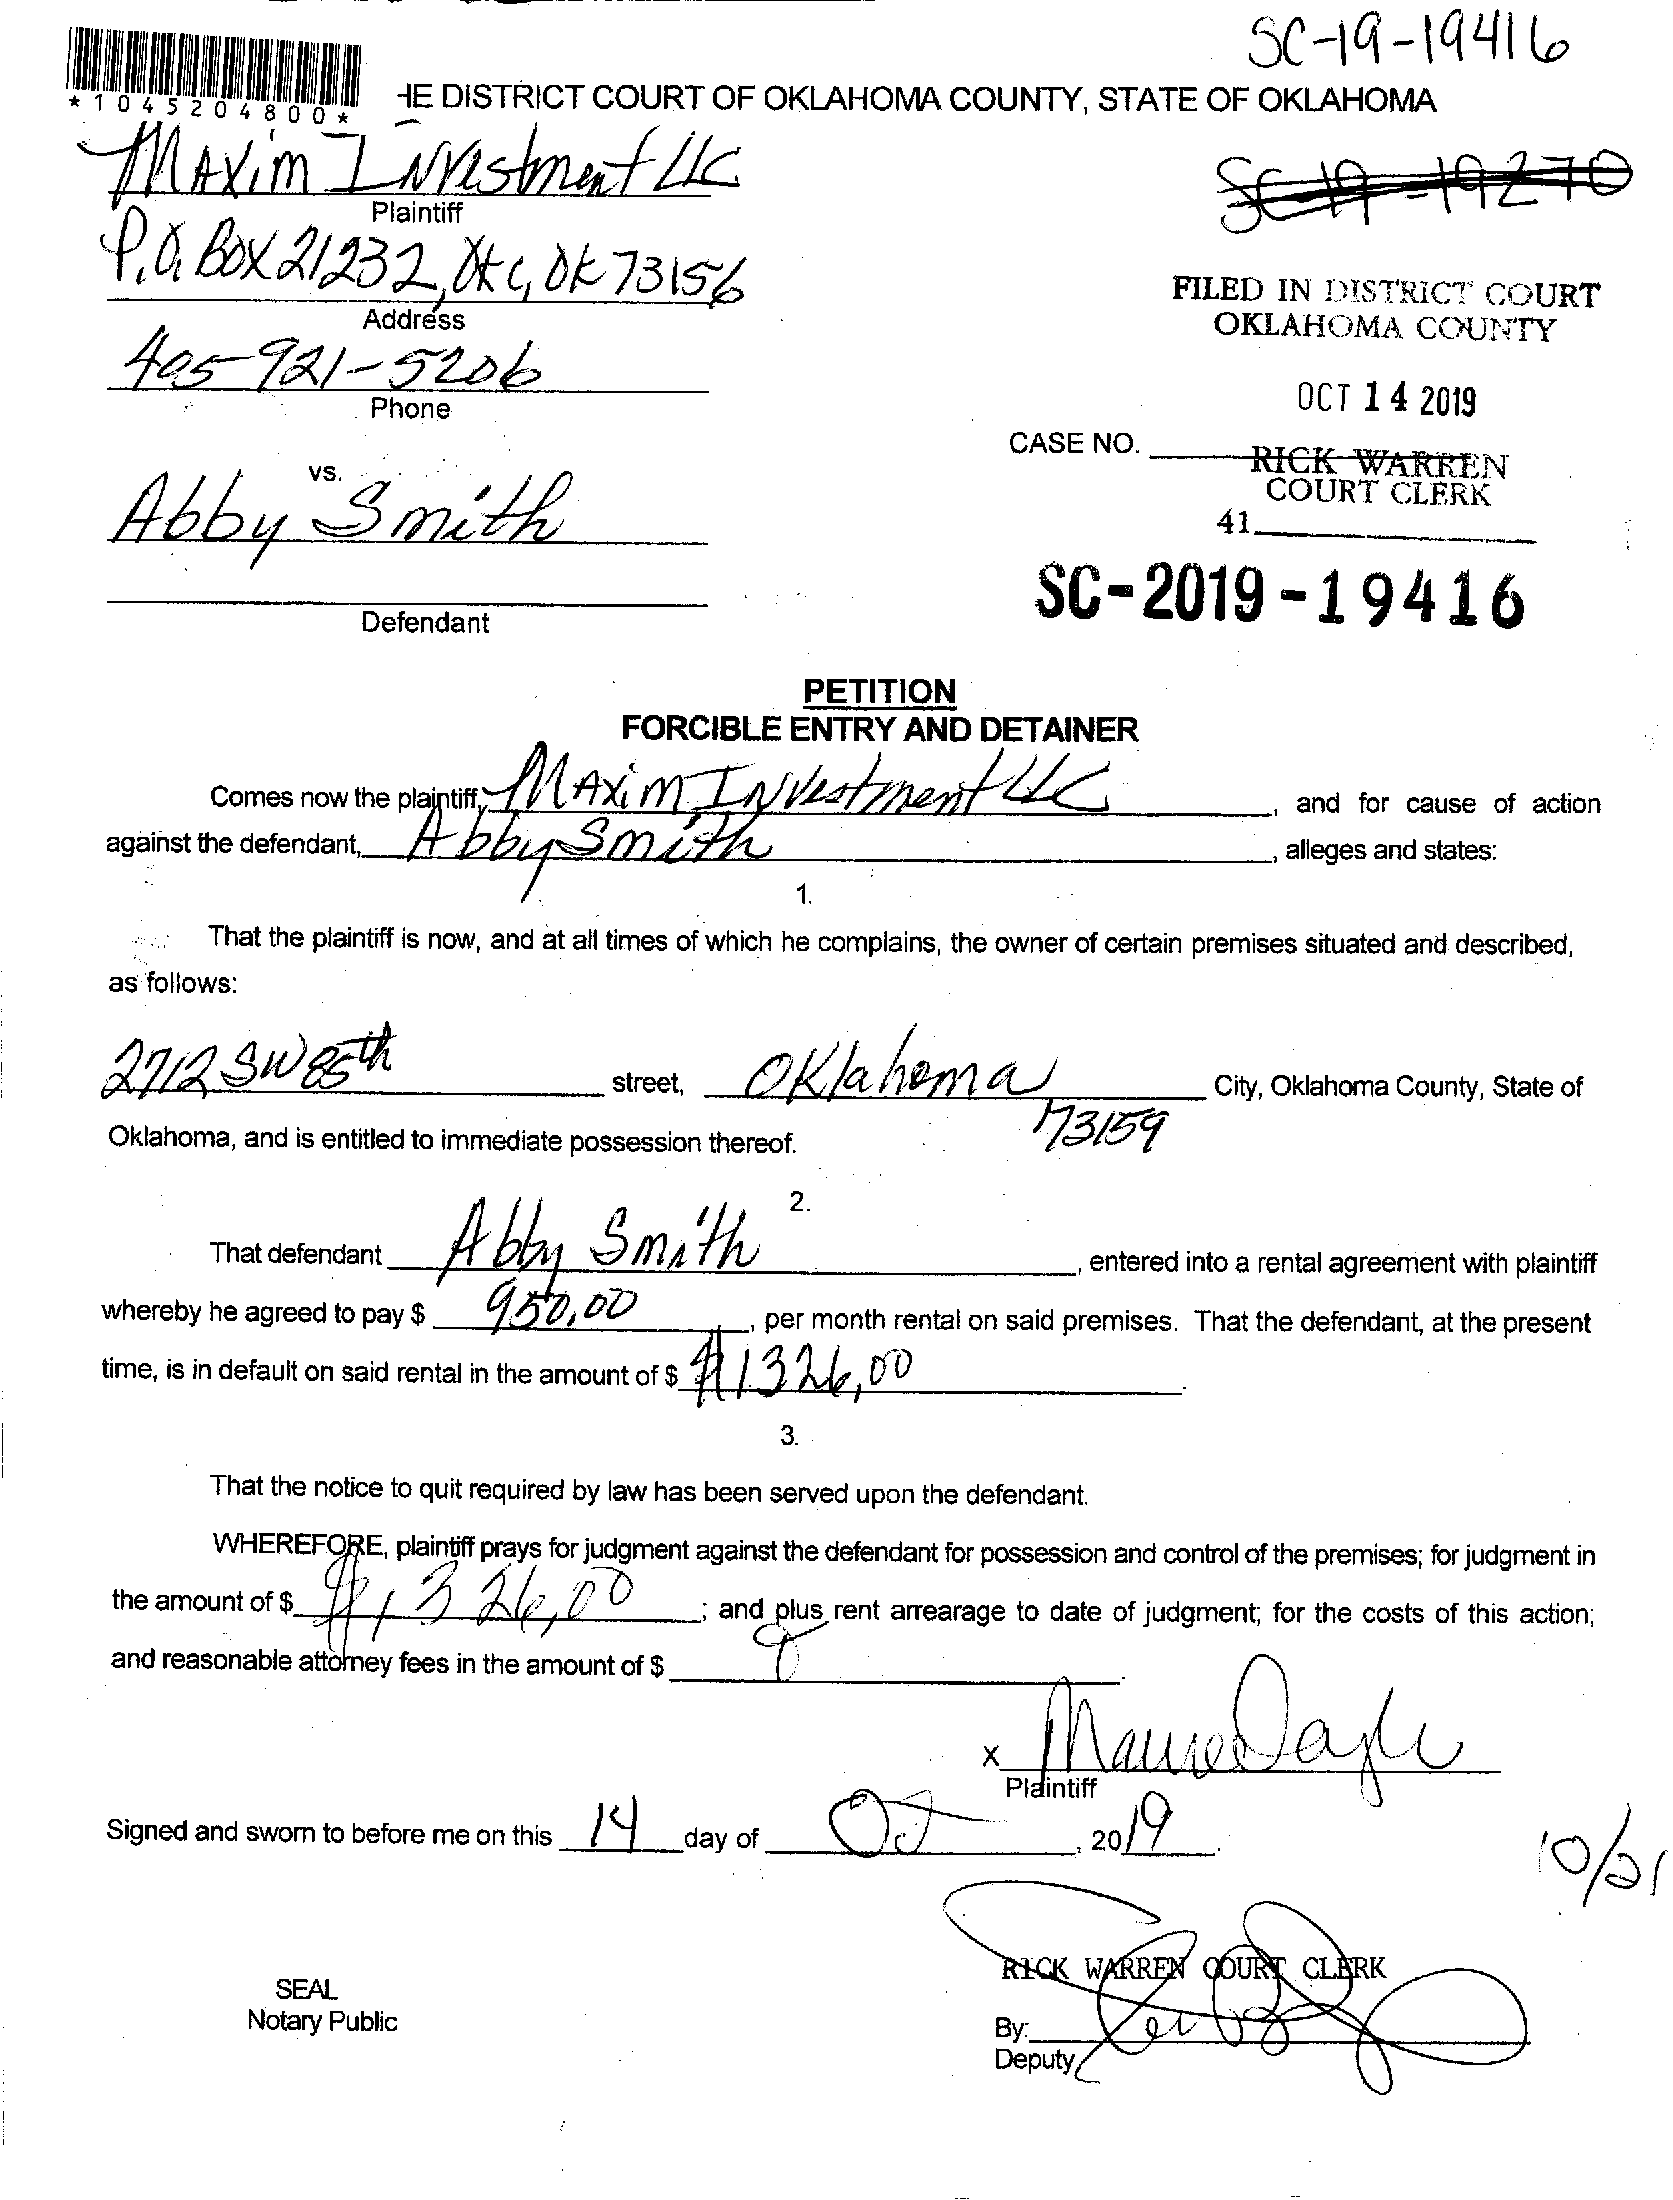 SC-19-19416
*1045204800*
HE DISTRICT COURT OF OKLAHOMA COUNTY, STATE OF OKLAHOMA
Maxim Investment LLC
Plaintiff
SC-19-19270
P.O. Box 21232, OKC, OK 73156
Address
FILED IN DISTRICT COURT
OKLAHOMA COUNTY
405-921-5206
Phone
OCT 14 2019
CASE NO.
RICK WARREN
COURT CLERK
41
vs.
Abby Smith
Defendant
SC-2019-19416
PETITION
FORCIBLE ENTRY AND DETAINER
Comes now the plaintiff, Maxim Investment LLC, and for cause of action
against the defendant, Abby Smith, alleges and states:
1.
That the plaintiff is now, and at all times of which he complains, the owner of certain premises situated and described,
as follows:
2712 SW 85th street, Oklahoma City, Oklahoma County, State of
73159
Oklahoma, and is entitled to immediate possession thereof.
2.
That defendant Abby Smith, entered into a rental agreement with plaintiff
whereby he agreed to pay $ 950.00, per month rental on said premises. That the defendant, at the present
time, is in default on said rental in the amount of $ $1326.00.
3.
That the notice to quit required by law has been served upon the defendant.
WHEREFORE, plaintiff prays for judgment against the defendant for possession and control of the premises; for judgment in
the amount of $ $1326.00; and plus rent arrearage to date of judgment; for the costs of this action;
and reasonable attorney fees in the amount of $
x
Plaintiff
Signed and sworn to before me on this 14 day of Oct, 2019.
10/21
RICK WARREN COURT CLERK
SEAL
Notary Public
By:
Deputy